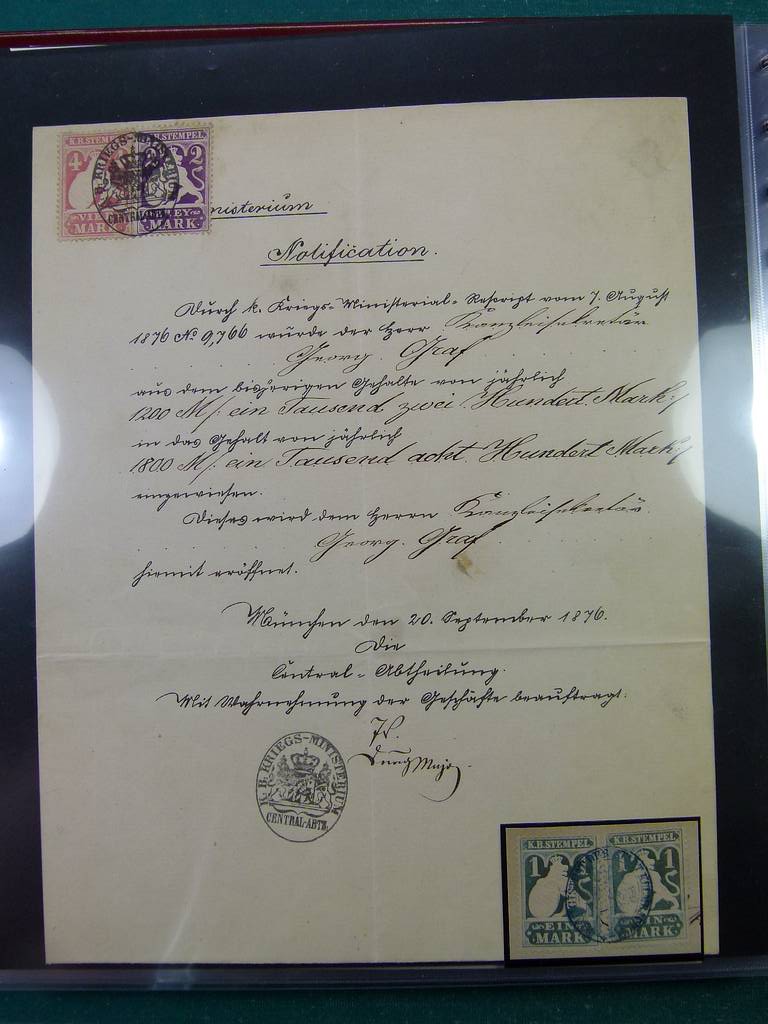 K.B.STEMPEL K.B.STEMPEL
4 2
K.B. KRIEGS-MINISTERIUM
CENTRAL-ABTH.
VIER ZWEY
MARK MARK
nisterium
Notification.
Durch k. Kriegs-Ministerial-Rescript vom 7. August
1876 No 9,766 wurde der Herr Kanzleisekretär
Georg Graf
aus dem bisherigen Gehalte von jährlich
1200 M /: ein Tausend zwei Hundert Mark :/
in das Gehalt von jährlich
1800 M /: ein Tausend acht Hundert Mark :/
eingewiesen.
Dieses wird dem Herrn Kanzleisekretär
Georg Graf
hiemit eröffnet.
München den 20. September 1876.
Die
Central-Abtheilung.
Mit Wahrnehmung der Geschäfte beauftragt:
K.B. KRIEGS-MINISTERIUM
CENTRAL-ABTH.
K.B.STEMPEL K.B.STEMPEL
1 1
EIN EIN
MARK MARK